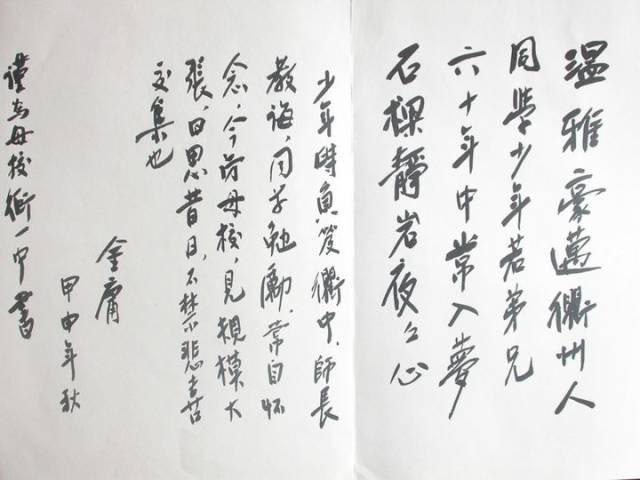 温雅豪邁衢州人
同學少年若弟兄
六十年中常入夢
石樑靜岩夜々心
少年時負笈衢中,師長
教誨,同学勉勵,常自怀
念,今母校,見規模大
張,思昔日,不禁悲喜
交集也
金庸
甲申年秋
謹为母校衢一中書